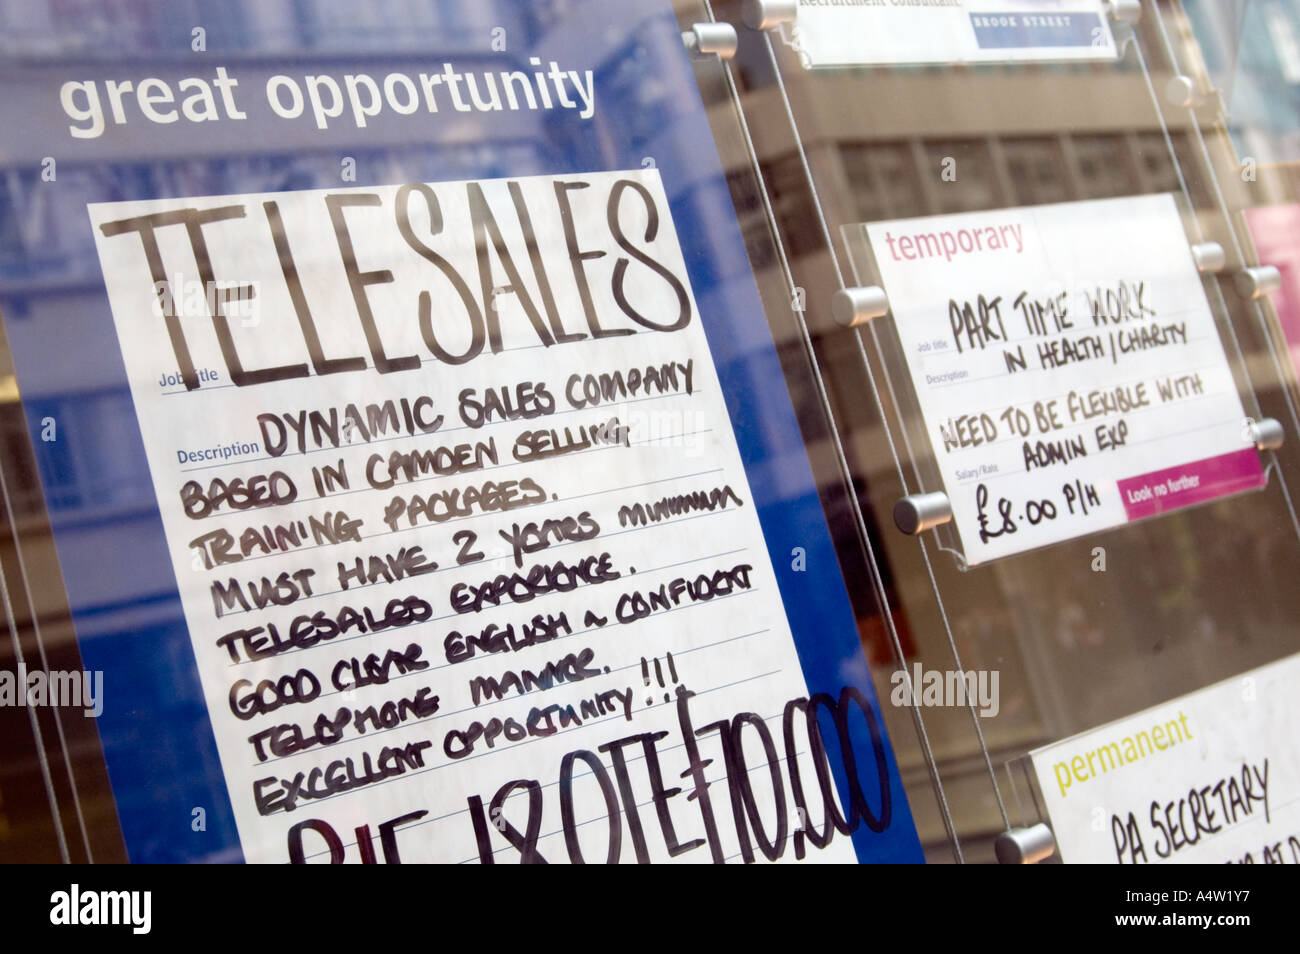 great opportunity
TELESALES
Job title
Description DYNAMIC SALES COMPANY
BASED IN CAMDEN SELLING
TRAINING PACKAGES.
MUST HAVE 2 YEARS MINIMUM
TELESALES EXPERIENCE.
GOOD CLEAR ENGLISH & CONFIDENT
TELEPHONE MANNER.
EXCELLENT OPPORTUNITY!!!
£18 OTE £70,000
Recruitment Consultant
BROOK STREET
temporary
Job title PART TIME WORK
Description IN HEALTH/CHARITY
NEED TO BE FLEXIBLE WITH
ADMIN EXP
Salary/Rate £8.00 P/H
Look no further
permanent
PA SECRETARY
alamy
Image ID: A4W1Y7
www.alamy.com